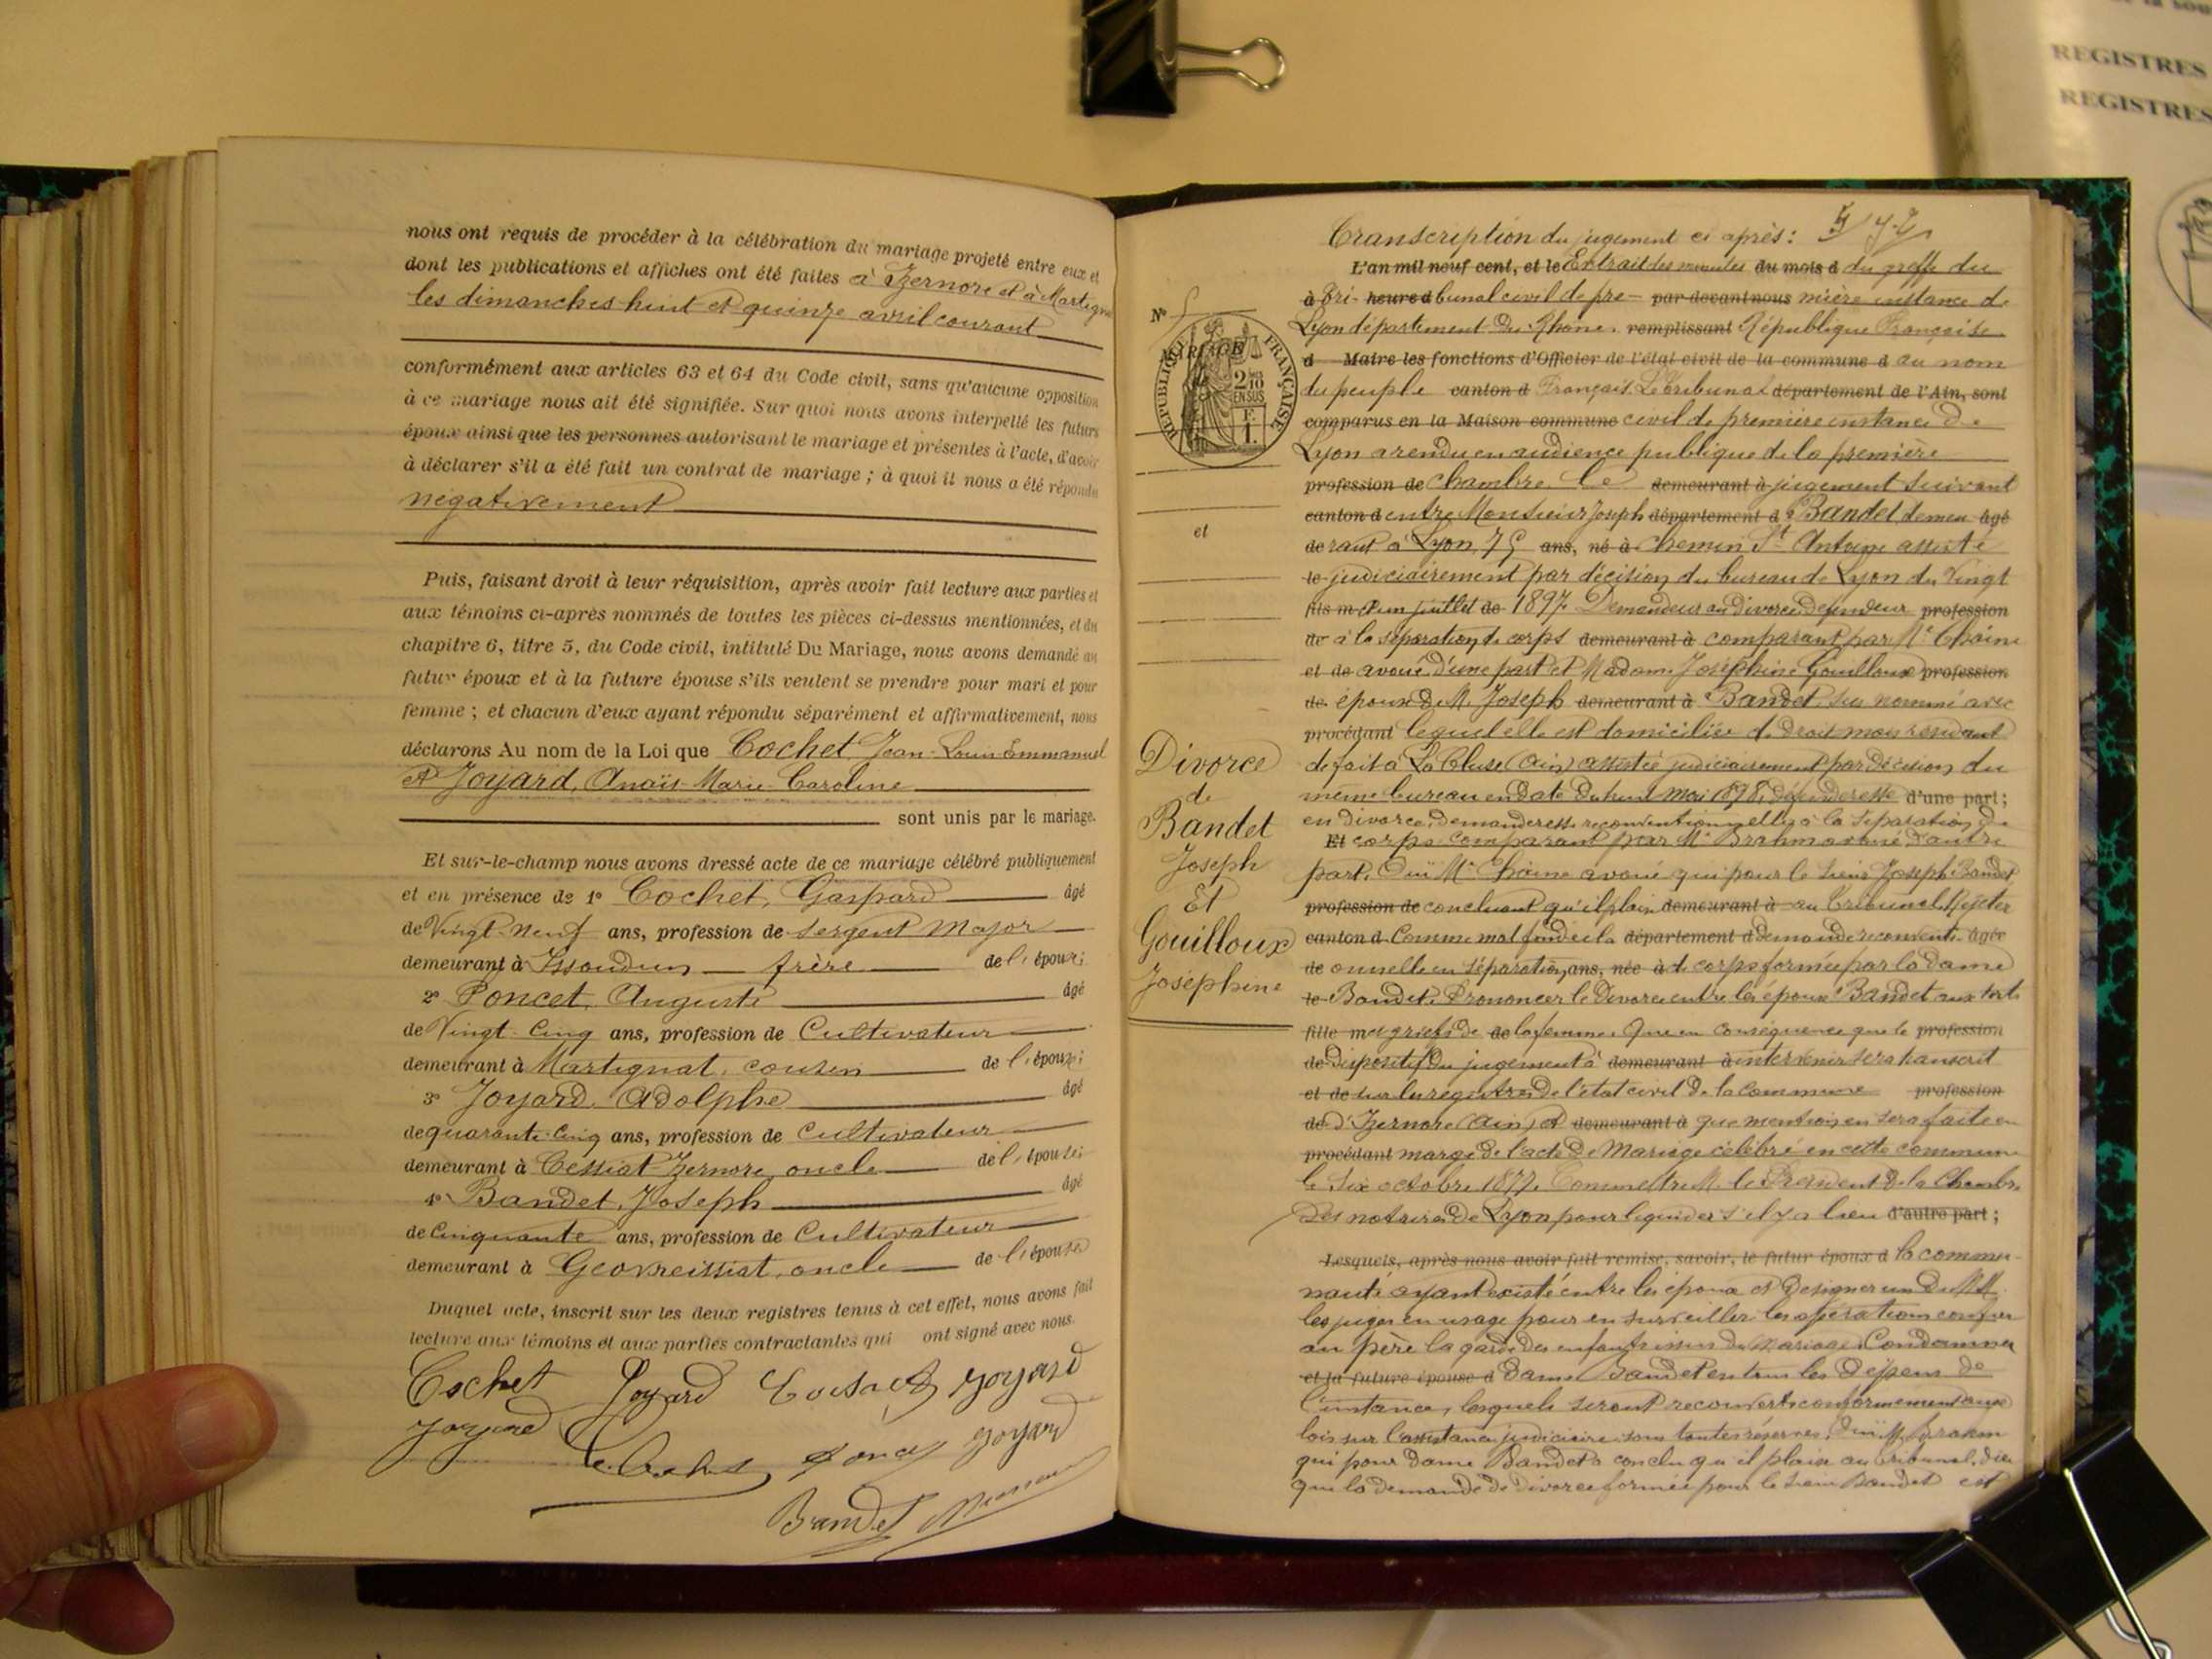 nous ont requis de procéder à la célébration du mariage projeté entre eux et
dont les publications et affiches ont été faites à Izernore et à Martigna
les dimanches huit et quinze avril courant
conformément aux articles 63 et 64 du Code civil, sans qu'aucune opposition
à ce mariage nous ait été signifiée. Sur quoi nous avons interpellé les futurs
époux ainsi que les personnes autorisant le mariage et présentes à l'acte, d'avoir
à déclarer s'il a été fait un contrat de mariage ; à quoi il nous a été répondu
négativement
Puis, faisant droit à leur réquisition, après avoir fait lecture aux parties et
aux témoins ci-après nommés de toutes les pièces ci-dessus mentionnées, et du
chapitre 6, titre 5, du Code civil, intitulé Du Mariage, nous avons demandé au
futur époux et à la future épouse s'ils veulent se prendre pour mari et pour
femme ; et chacun d'eux ayant répondu séparément et affirmativement, nous
déclarons Au nom de la Loi que Cochet Jean-Louis Emmanuel
et Joyard, Anaïs-Marie-Caroline
sont unis par le mariage.
Et sur-le-champ nous avons dressé acte de ce mariage célébré publiquement
et en présence de 1° Cochet, Gaspard âgé
de Vingt-neuf ans, profession de Sergent Major
demeurant à Issoudun frère de l' époux;
2° Poncet, Auguste âgé
de Vingt-Cinq ans, profession de Cultivateur
demeurant à Martignat, cousin de l' époux;
3° Joyard, Adolphe âgé
de quarante-cinq ans, profession de Cultivateur
demeurant à Cessiat-Izernore, oncle de l' épouse;
4° Bandet, Joseph âgé
de Cinquante ans, profession de Cultivateur
demeurant à Geovreissiat, oncle de l' épouse
Duquel acte, inscrit sur les deux registres tenus à cet effet, nous avons fait
lecture aux témoins et aux parties contractantes qui ont signé avec nous.
Cochet Joyard Joyard
Joyard Joyard
Bandet
REGISTRES
REGISTRES
Transcription du jugement ci après :
L'an mil neuf cent, et le Extrait des minutes du mois d du greffe du
à tri- heure d bunal civil de pre- par devant nous mière instance de
Lyon département du Rhône. remplissant République Française
d Maire les fonctions d'Officier de l'état civil de la commune d au nom
du peuple canton d Français. Le tribunal département de l'Ain, sont
comparus en la Maison commune civil de première instance de
Lyon a rendu en audience publique de la première
profession de Chambre, le demeurant à jugement suivant
canton d entre Monsieur Joseph département d Bandet demeu âgé
de rant à Lyon, 75 ans, né à Chemin St Antoine assisté
le judiciairement par décision du bureau de Lyon du Vingt
fils m et un juillet de 1897. Demandeur au divorce, défendeur profession
de à la séparation de corps demeurant à comparant par Me Chaine
et de avoué d'une part et Madame Joséphine Gouilloux profession
de épouse de M. Joseph demeurant à Bandet, sus nommé avec
procédant lequel elle est domiciliée de droit mais résidant
de fait à La Cluse (Ain) assistée judiciairement par décision du
même bureau en date du huit mai 1898, défenderesse d'une part;
en divorce, demanderesse reconventionnelle à la séparation de
Et corps comparant par Me Brahm avoué, d'autre
part. Ouï Me Chaine avoué qui pour le sieur Joseph Bandet
profession de concluant qu'il plaise demeurant à au Tribunal Rejeter
canton d Comme mal fondée la département d demande reconventi- âgée
de onnelle en séparation ans, née à de corps formée par la dame
le Bandet. Prononcer le divorce entre les époux Bandet aux torts
fille m et griefs de de la femme. Que en conséquence que le profession
de dispositif du jugement à demeurant à intervenir sera transcrit
et de sur les registres de l'état civil de la commune profession
de d'Izernore (Ain) et demeurant à que mention en sera faite en
procédant marge de l'acte de Mariage célébré en cette commune
le Six octobre 1877. Commettre M. le Président de la Chambre
des notaires de Lyon pour liquider s'il y a lieu d'autre part ;
Lesquels, après nous avoir fait remise, savoir, le futur époux d la commu-
nauté ayant existé entre les époux et désigner un de MM.
les juges en usage pour en surveiller les opérations confier
au père la garde des enfants issus du Mariage. Condamner
et la future épouse d Dame Bandet en tous les dépens de
l'instance, lesquels seront recouvrés conformément aux
lois sur l'assistance judiciaire sous toutes réserves. Ouï Me Brahm
qui pour dame Bandet a conclu qu'il plaise au tribunal, dire
que la demande de divorce formée pour le sieur Bandet est
N° 5
MARIAGE
RÉPUBLIQUE FRANÇAISE
2/10 EN SUS
F. 1.
et
Divorce
de
Bandet
Joseph
Et
Gouilloux
Joséphine